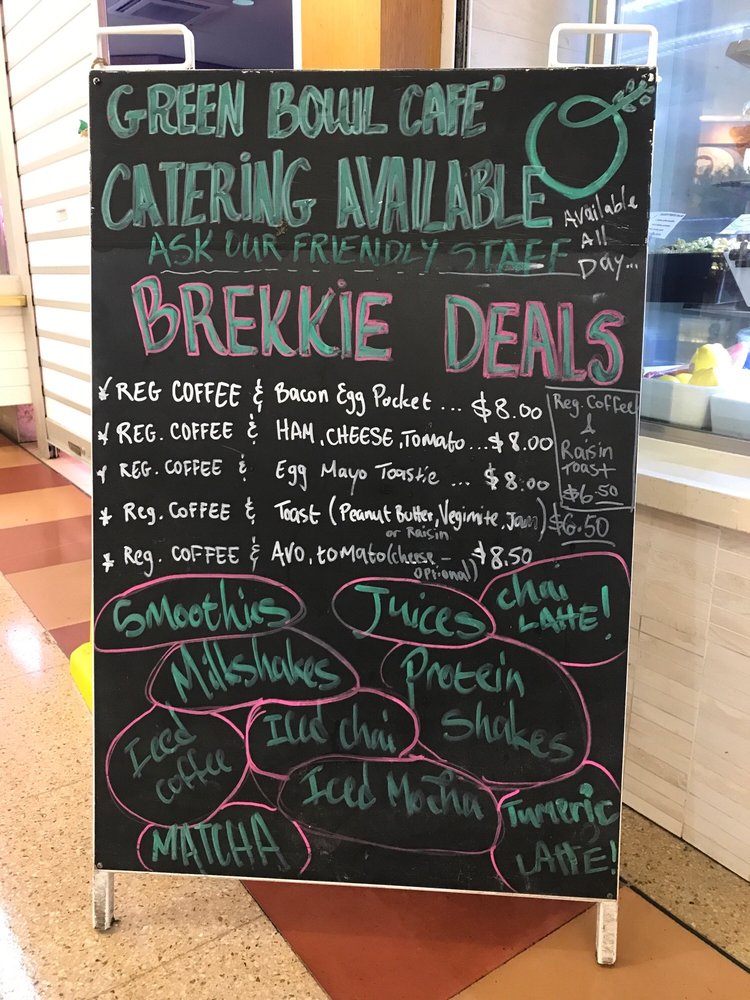 GREEN BOWL CAFE'
CATERING AVAILABLE
ASK OUR FRIENDLY STAFF
Available
All
Day...
BREKKIE DEALS
* REG COFFEE & Bacon Egg Pocket ... $8.00
* REG. COFFEE & HAM, CHEESE, Tomato ... $8.00
* REG. COFFEE & Egg Mayo Toastie ... $8.00
* Reg. COFFEE & Toast (Peanut Butter, Vegimite, Jam) $6.50
or Raisin
* Reg. COFFEE & Avo, tomato (cheese - $8.50
optional)
Reg. Coffee
&
Raisin
Toast
$6.50
Smoothies
Juices
chai
LATTE!
Milkshakes
Protein
shakes
Iced
coffee
Iced chai
Iced Mocha
MATCHA
Tumeric
LATTE!